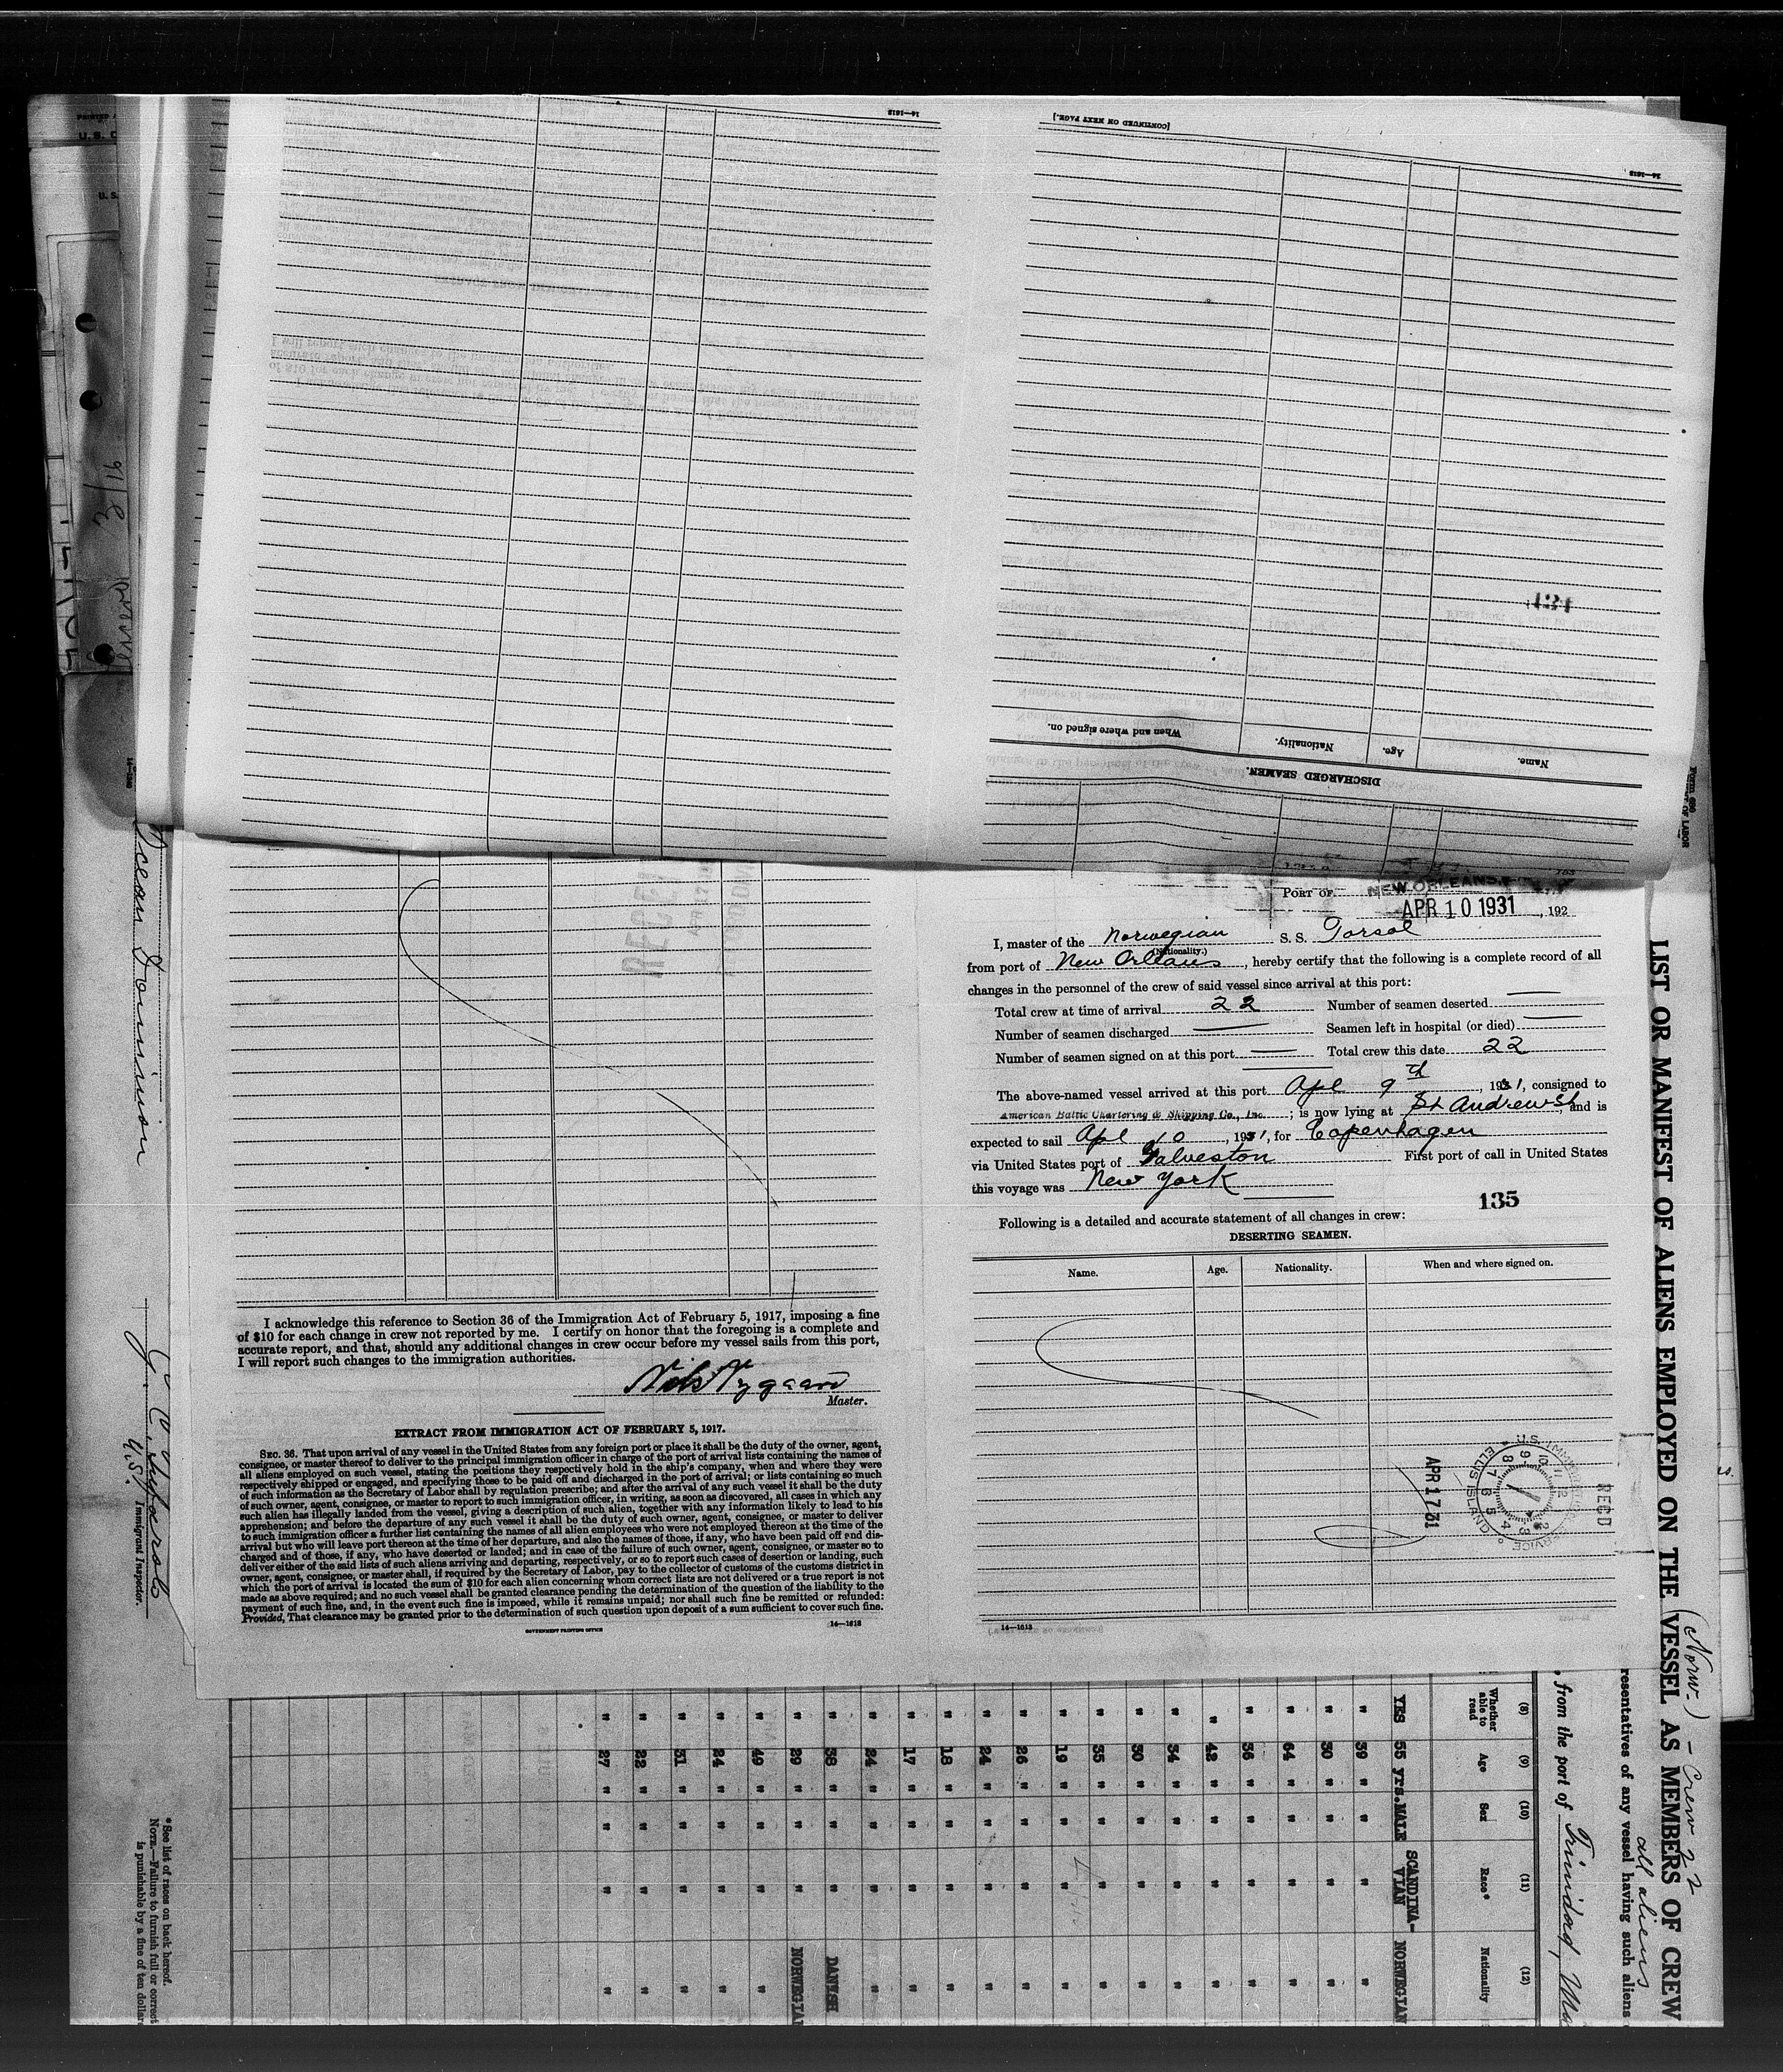 14—1613
[CONTINUED ON NEXT PAGE.]
14—1613
When and where signed on.
Nationality.
Age.
Name.
DISCHARGED SEAMEN.
PORT OF NEW ORLEANS
APR 10 1931, 192
I, master of the Norwegian S. S. Torsol
(Nationality.)
from port of New Orleans, hereby certify that the following is a complete record of all
changes in the personnel of the crew of said vessel since arrival at this port:
Total crew at time of arrival 22 Number of seamen deserted —
Number of seamen discharged — Seamen left in hospital (or died) —
Number of seamen signed on at this port — Total crew this date 22
The above-named vessel arrived at this port Apl 9th, 1931, consigned to
American Baltic Chartering & Shipping Co., Inc. ; is now lying at St Andrew St, and is
expected to sail Apl 10, 1931, for Copenhagen
via United States port of Galveston First port of call in United States
this voyage was New York
135
Following is a detailed and accurate statement of all changes in crew:
DESERTING SEAMEN.
Name. Age. Nationality. When and where signed on.
REC'D
U.S. IMMIGRATION SERVICE ELLIS ISLAND
APR 17 31
14—1613
I acknowledge this reference to Section 36 of the Immigration Act of February 5, 1917, imposing a fine
of $10 for each change in crew not reported by me. I certify on honor that the foregoing is a complete and
accurate report, and that, should any additional changes in crew occur before my vessel sails from this port,
I will report such changes to the immigration authorities.
Nils Nygaard
Master.
EXTRACT FROM IMMIGRATION ACT OF FEBRUARY 5, 1917.
SEC. 36. That upon arrival of any vessel in the United States from any foreign port or place it shall be the duty of the owner, agent,
consignee, or master thereof to deliver to the principal immigration officer in charge of the port of arrival lists containing the names of
all aliens employed on such vessel, stating the positions they respectively hold in the ship's company, when and where they were
respectively shipped or engaged, and specifying those to be paid off and discharged in the port of arrival; or lists containing so much
of such information as the Secretary of Labor shall by regulation prescribe; and after the arrival of any such vessel it shall be the duty
of such owner, agent, consignee, or master to report to such immigration officer, in writing, as soon as discovered, all cases in which any
such alien has illegally landed from the vessel, giving a description of such alien, together with any information likely to lead to his
apprehension; and before the departure of any such vessel it shall be the duty of such owner, agent, consignee, or master to deliver
to such immigration officer a further list containing the names of all alien employees who were not employed thereon at the time of the
arrival but who will leave port thereon at the time of her departure, and also the names of those, if any, who have been paid off and dis-
charged and of those, if any, who have deserted or landed; and in case of the failure of such owner, agent, consignee, or master so to
deliver either of the said lists of such aliens arriving and departing, respectively, or so to report such cases of desertion or landing, such
owner, agent, consignee, or master shall, if required by the Secretary of Labor, pay to the collector of customs of the customs district in
which the port of arrival is located the sum of $10 for each alien concerning whom correct lists are not delivered or a true report is not
made as above required; and no such vessel shall be granted clearance pending the determination of the question of the liability to the
payment of such fine, and, in the event such fine is imposed, while it remains unpaid; nor shall such fine be remitted or refunded:
Provided, That clearance may be granted prior to the determination of such question upon deposit of a sum sufficient to cover such fine.
GOVERNMENT PRINTING OFFICE 14—1613
Form 680
LIST OR MANIFEST OF ALIENS EMPLOYED ON THE VESSEL AS MEMBERS OF CREW
(Norw.) - Crew 22
all aliens
resentatives of any vessel having such aliens
, from the port of Trinidad,
(8) (9) (10) (11) (12)
Whether able to read Age Sex Race* Nationality
YES 55 yrs. MALE SCANDINA-VIAN NORWEGIAN
" 39 " " " "
" 30 " " " "
" 64 " " " "
" 36 " " " "
" 42 " " " "
" 34 " " " "
" 30 " " " "
" 35 " " " "
" 19 " " " "
" 26 " " " "
" 24 " " " "
" 18 " " " "
" 17 " " " "
" 24 " " " "
" 38 " " " DANISH
" 29 " " " NORWEGIA
" 49 " " " "
" 24 " " " "
" 31 " " " "
" 22 " " " "
" 27 " " " "
Ocean Dominion
U.S. Immigrant Inspector.
*See list of races on back hereof.
NOTE.—Failure to furnish full or correct
is punishable by a fine of ten dollars